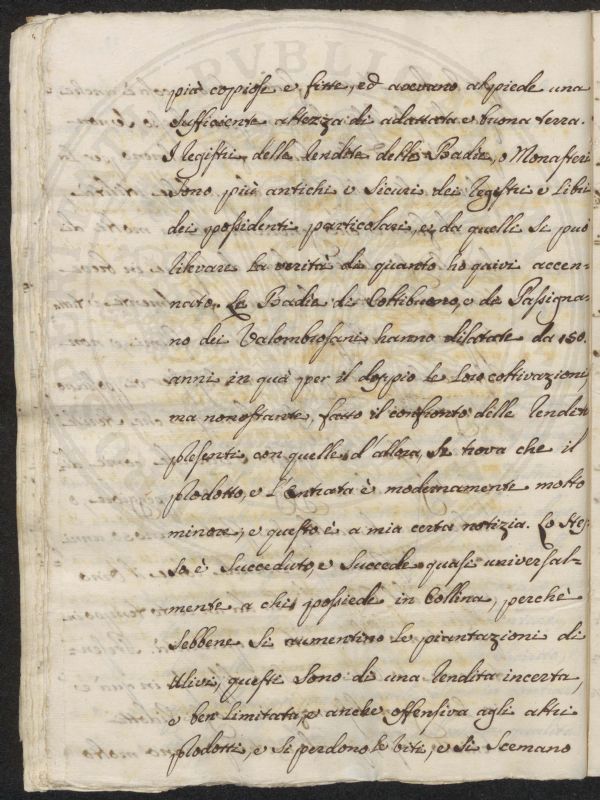 più copiose e fitte, ed avevano al piede una
sufficiente altezza di adattata e buona terra.
I Registri delle Rendite delle Badie, o Monasteri
sono più antichi e sicuri dei Registri e Libri
dei possidenti particolari, e da quelli si può
rilevare la verità di quanto ho quivi accen-
nato. Le Badie di Coltibuono, e de Passigna-
no dei Valombrosani hanno dilatate da 150.
anni in quà per il doppio le loro coltivazioni,
ma nonostante, fatto il confronto delle Rendite
presenti con quelle d'allora, si trova che il
prodotto, e l'Entrata è modernamente molto
minore, e questo è a mia certa notizia. Lo stes-
so è succeduto, e succede quasi universal-
mente a chi possiede in Collina, perchè
sebbene si aumentino le piantazioni di
Ulivi, questi sono di una rendita incerta,
e ben limitata, e anche offensiva agli altri
prodotti, e si perdono le viti, e si scemano